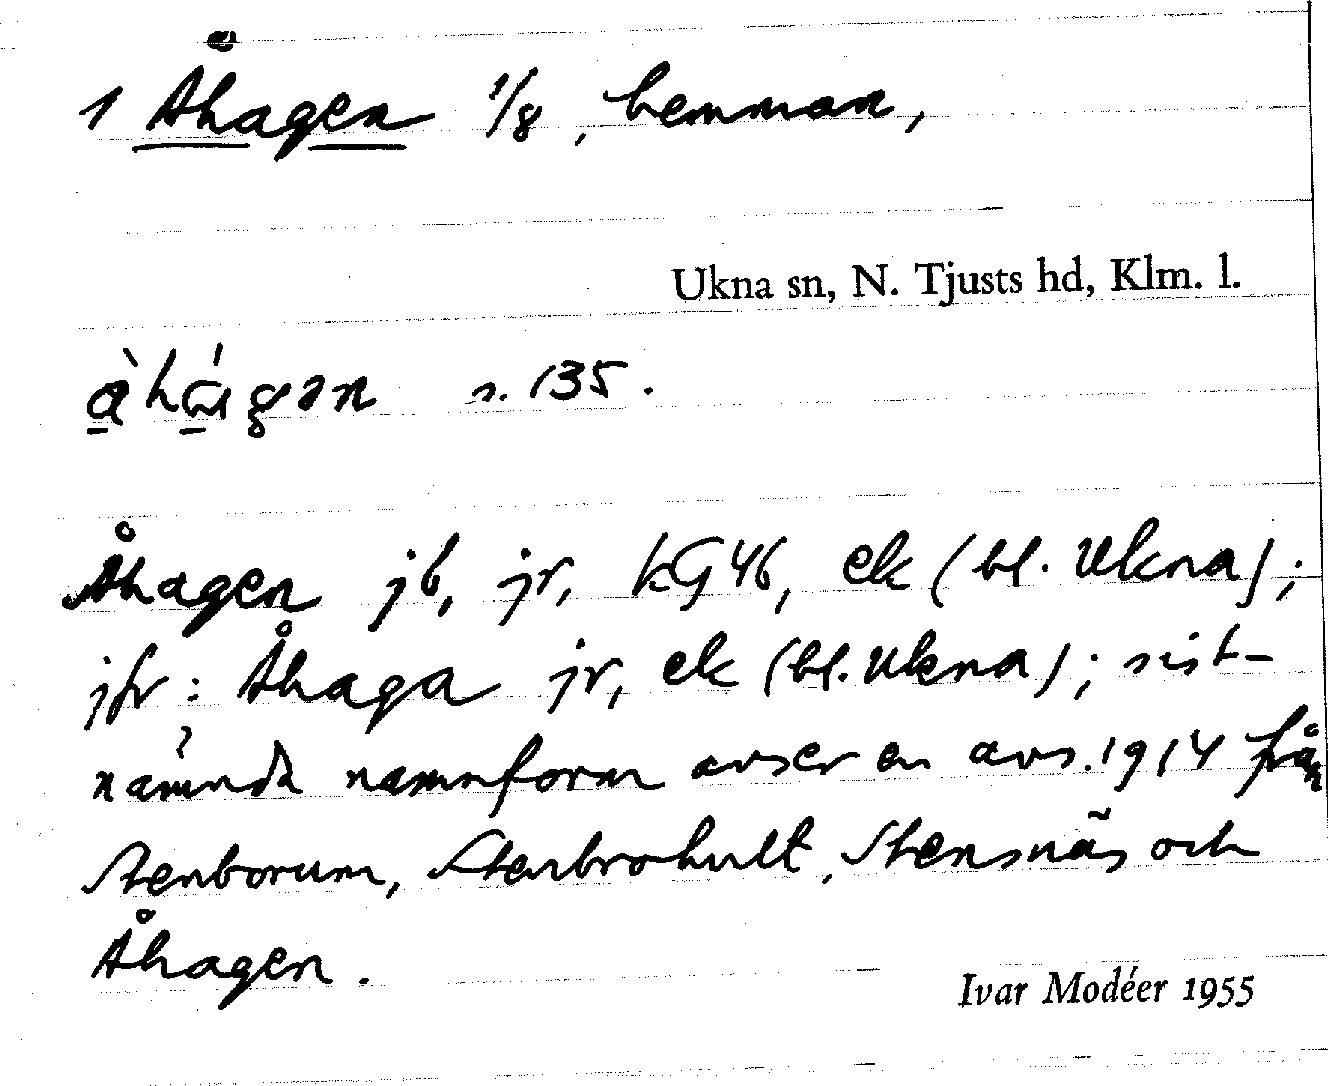 1 Åhagen 1/8, hemman,
Ukna sn, N. Tjusts hd, Klm. l.
s. 135.
Åhagen jb, jr, kG46, ek (bl. Ukna);
jfr: Åhaga jr, ek (bl. Ukna); sist-
nämnda namnform avser en avs. 1914 från
Stenborum, Stenbrohult, Stensnäs och
Åhagen.
Ivar Modéer 1955